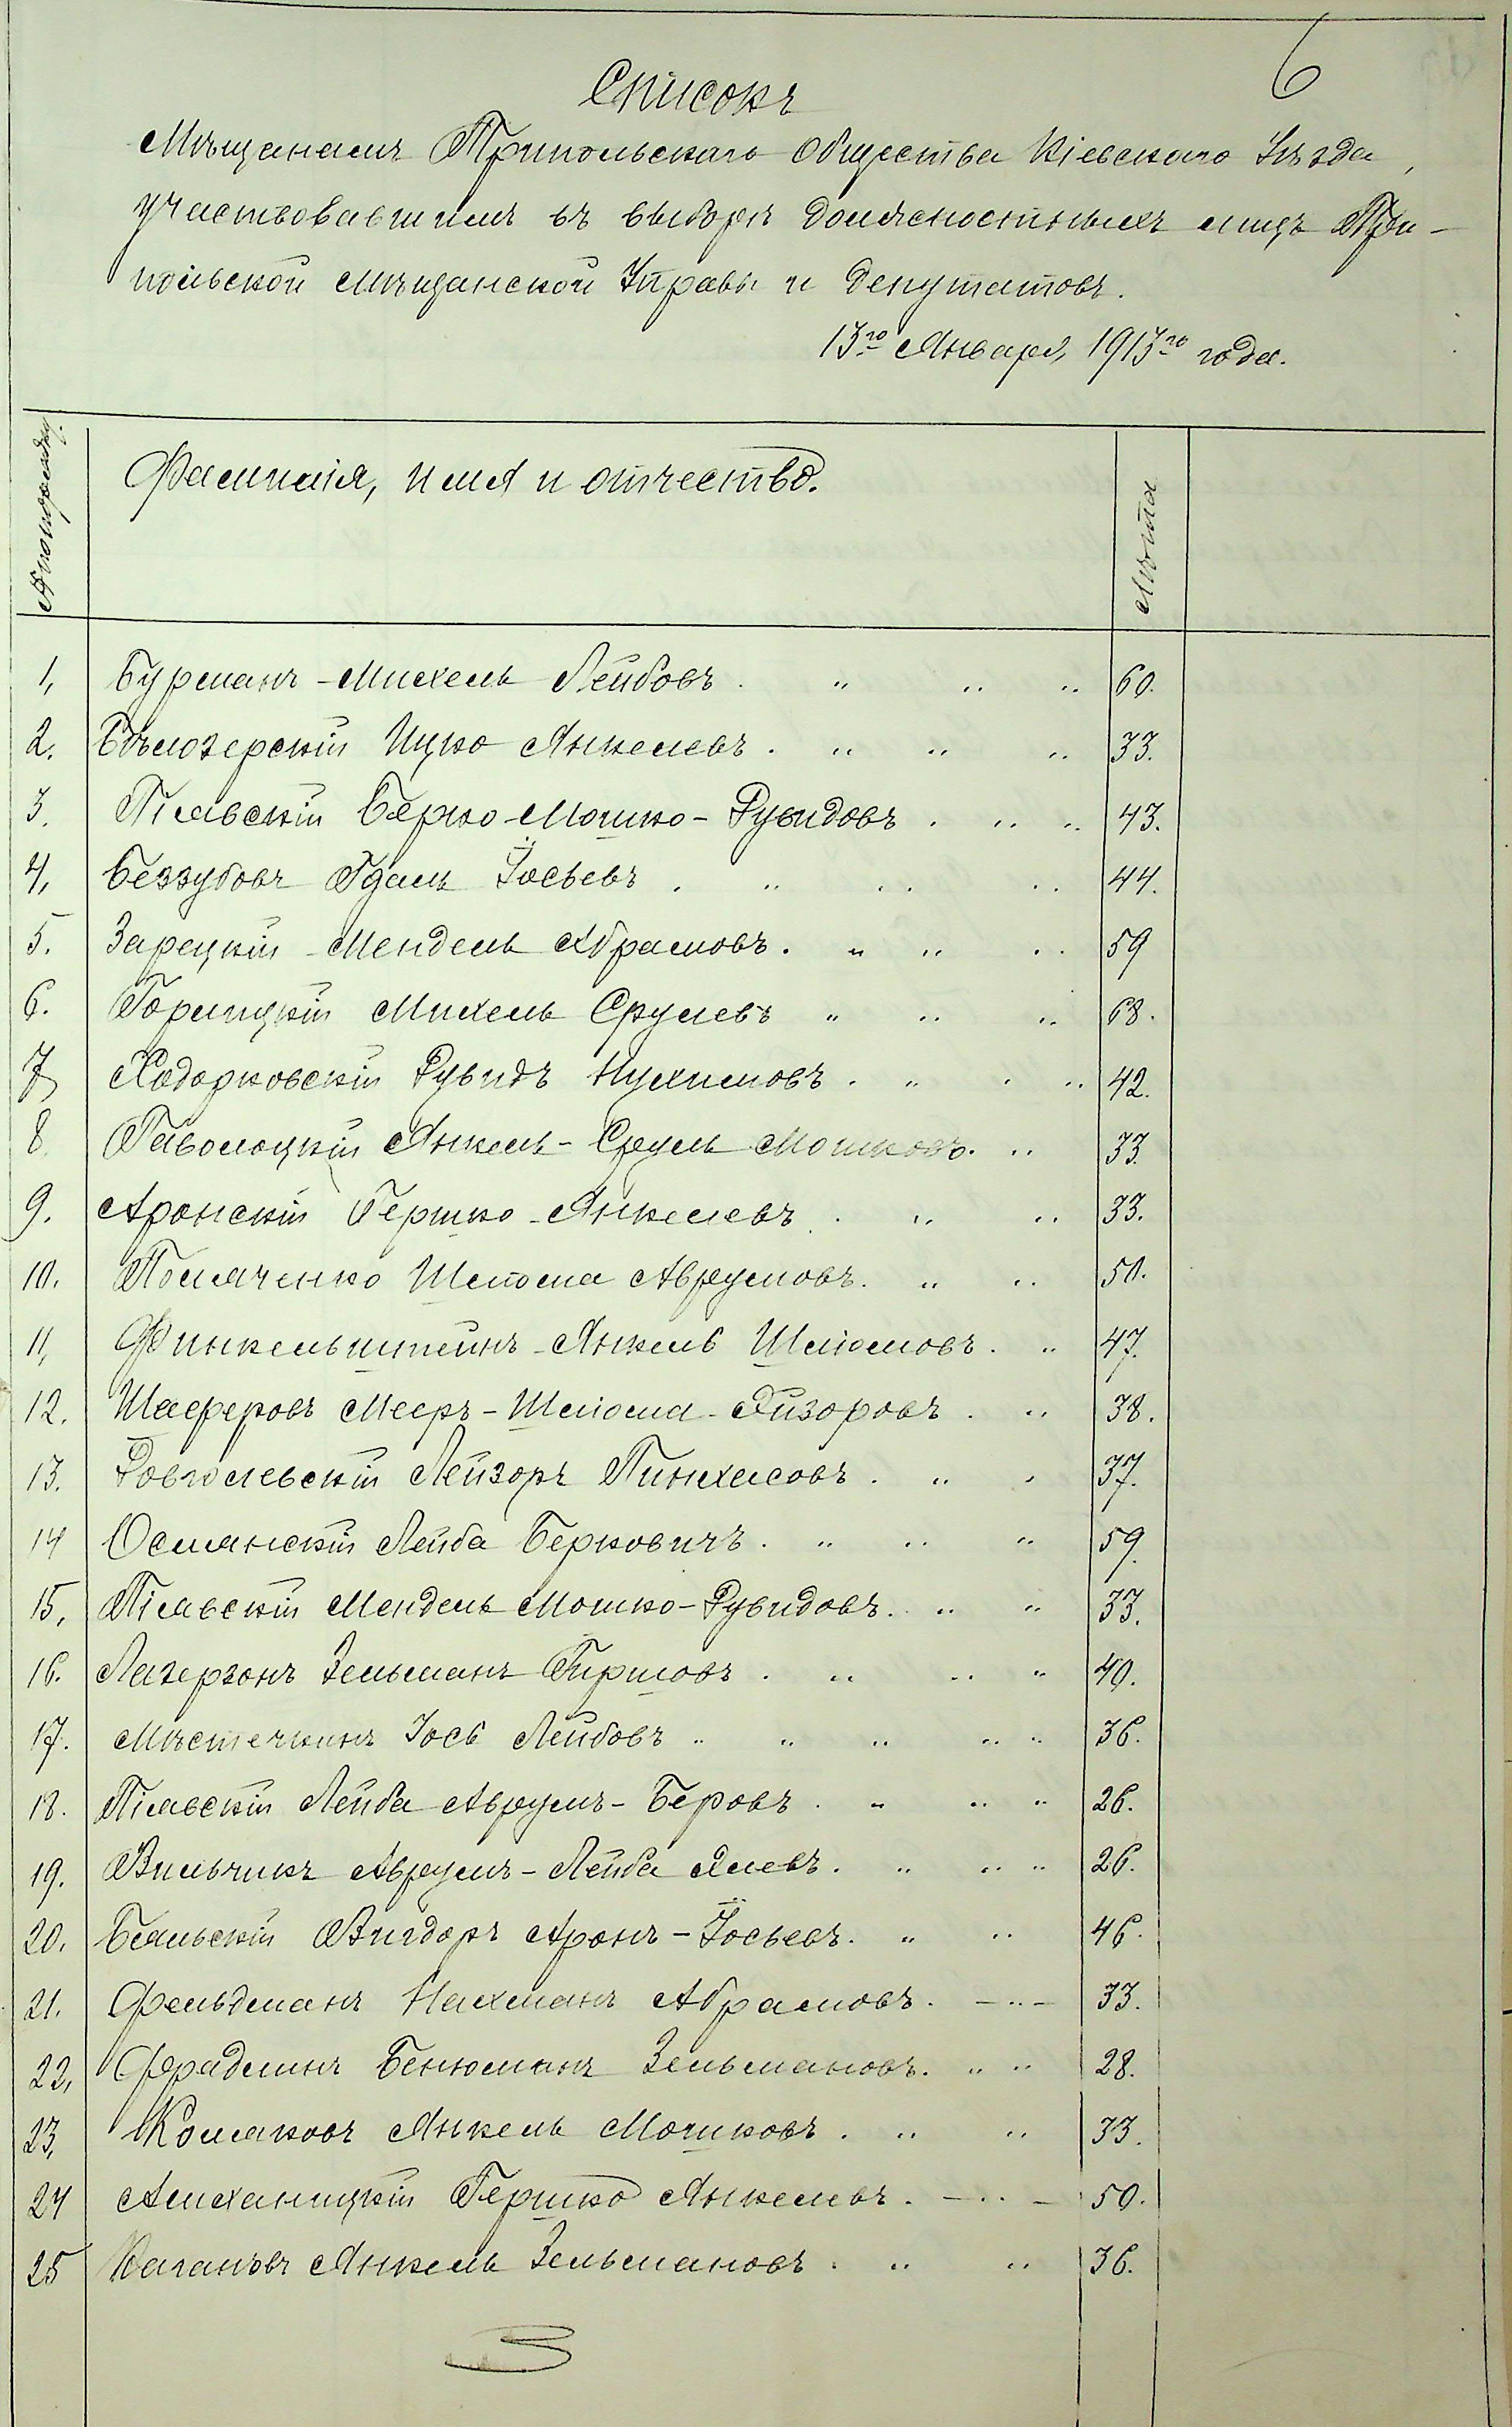 6
Списокъ
Мѣщанамъ Трипольскаго Общества Кіевскаго Уѣзда,
участвовавшимъ въ выборѣ должностныхъ лицъ Три-
польской Мѣщанской Управы и депутатовъ.
13го Января 1913го года.
№ по порядку. Фамилія, имя и отчество. Лѣта
1, Бурманъ Михель Лейбовъ 60.
2. Бѣлозерскій Ицко Янкелевъ 33.
3. Пілявскій Берко-Мошко-Рувидовъ 43.
4, Беззубовъ Гдаль Іосьевъ 44.
5. Зарецкій Мендель Абрамовъ. 59
6. Горлицкій Михель Срулевъ 68.
7 Ходорковскій Рувидъ Нухимовъ. 42.
8 Паволоцкій Янкель-Сруль Мошковъ. 33.
9. Аронскій Гершко Янкелевъ 33.
10. Толмаченко Шлёма Аврумовъ. 50.
11, Финкельштейнъ Янкель Шлёмовъ. 47.
12. Шаферовъ Мееръ-Шлёма 38.
13. Лейзоръ Пинхасовъ. 37.
14 Османскій Лейба Берковичъ. 59.
15, Пілявскій Мендель Мошко-Рувидовъ. 33.
16. Лазерзонъ Зельманъ Гиршовъ. 40.
17. Мѣстечкинъ Іось Лейбовъ 36.
18. Пілявскій Лейба Аврумъ-Беровъ. 26.
19. Вильчикъ Аврумъ-Лейба 26.
20. Бѣльскій Вигдоръ Аронъ-Іосьевъ. 46.
21. Фельдманъ Нахманъ Абрамовъ. 33.
22, Фрадлинъ Бенюманъ Зельмановъ. 28.
23, Колмаковъ Янкель Мошковъ. 33.
24 Алиханицкій Гершко Янкелевъ. 50.
25 Кагановъ Янкель Зельмановъ. 36.